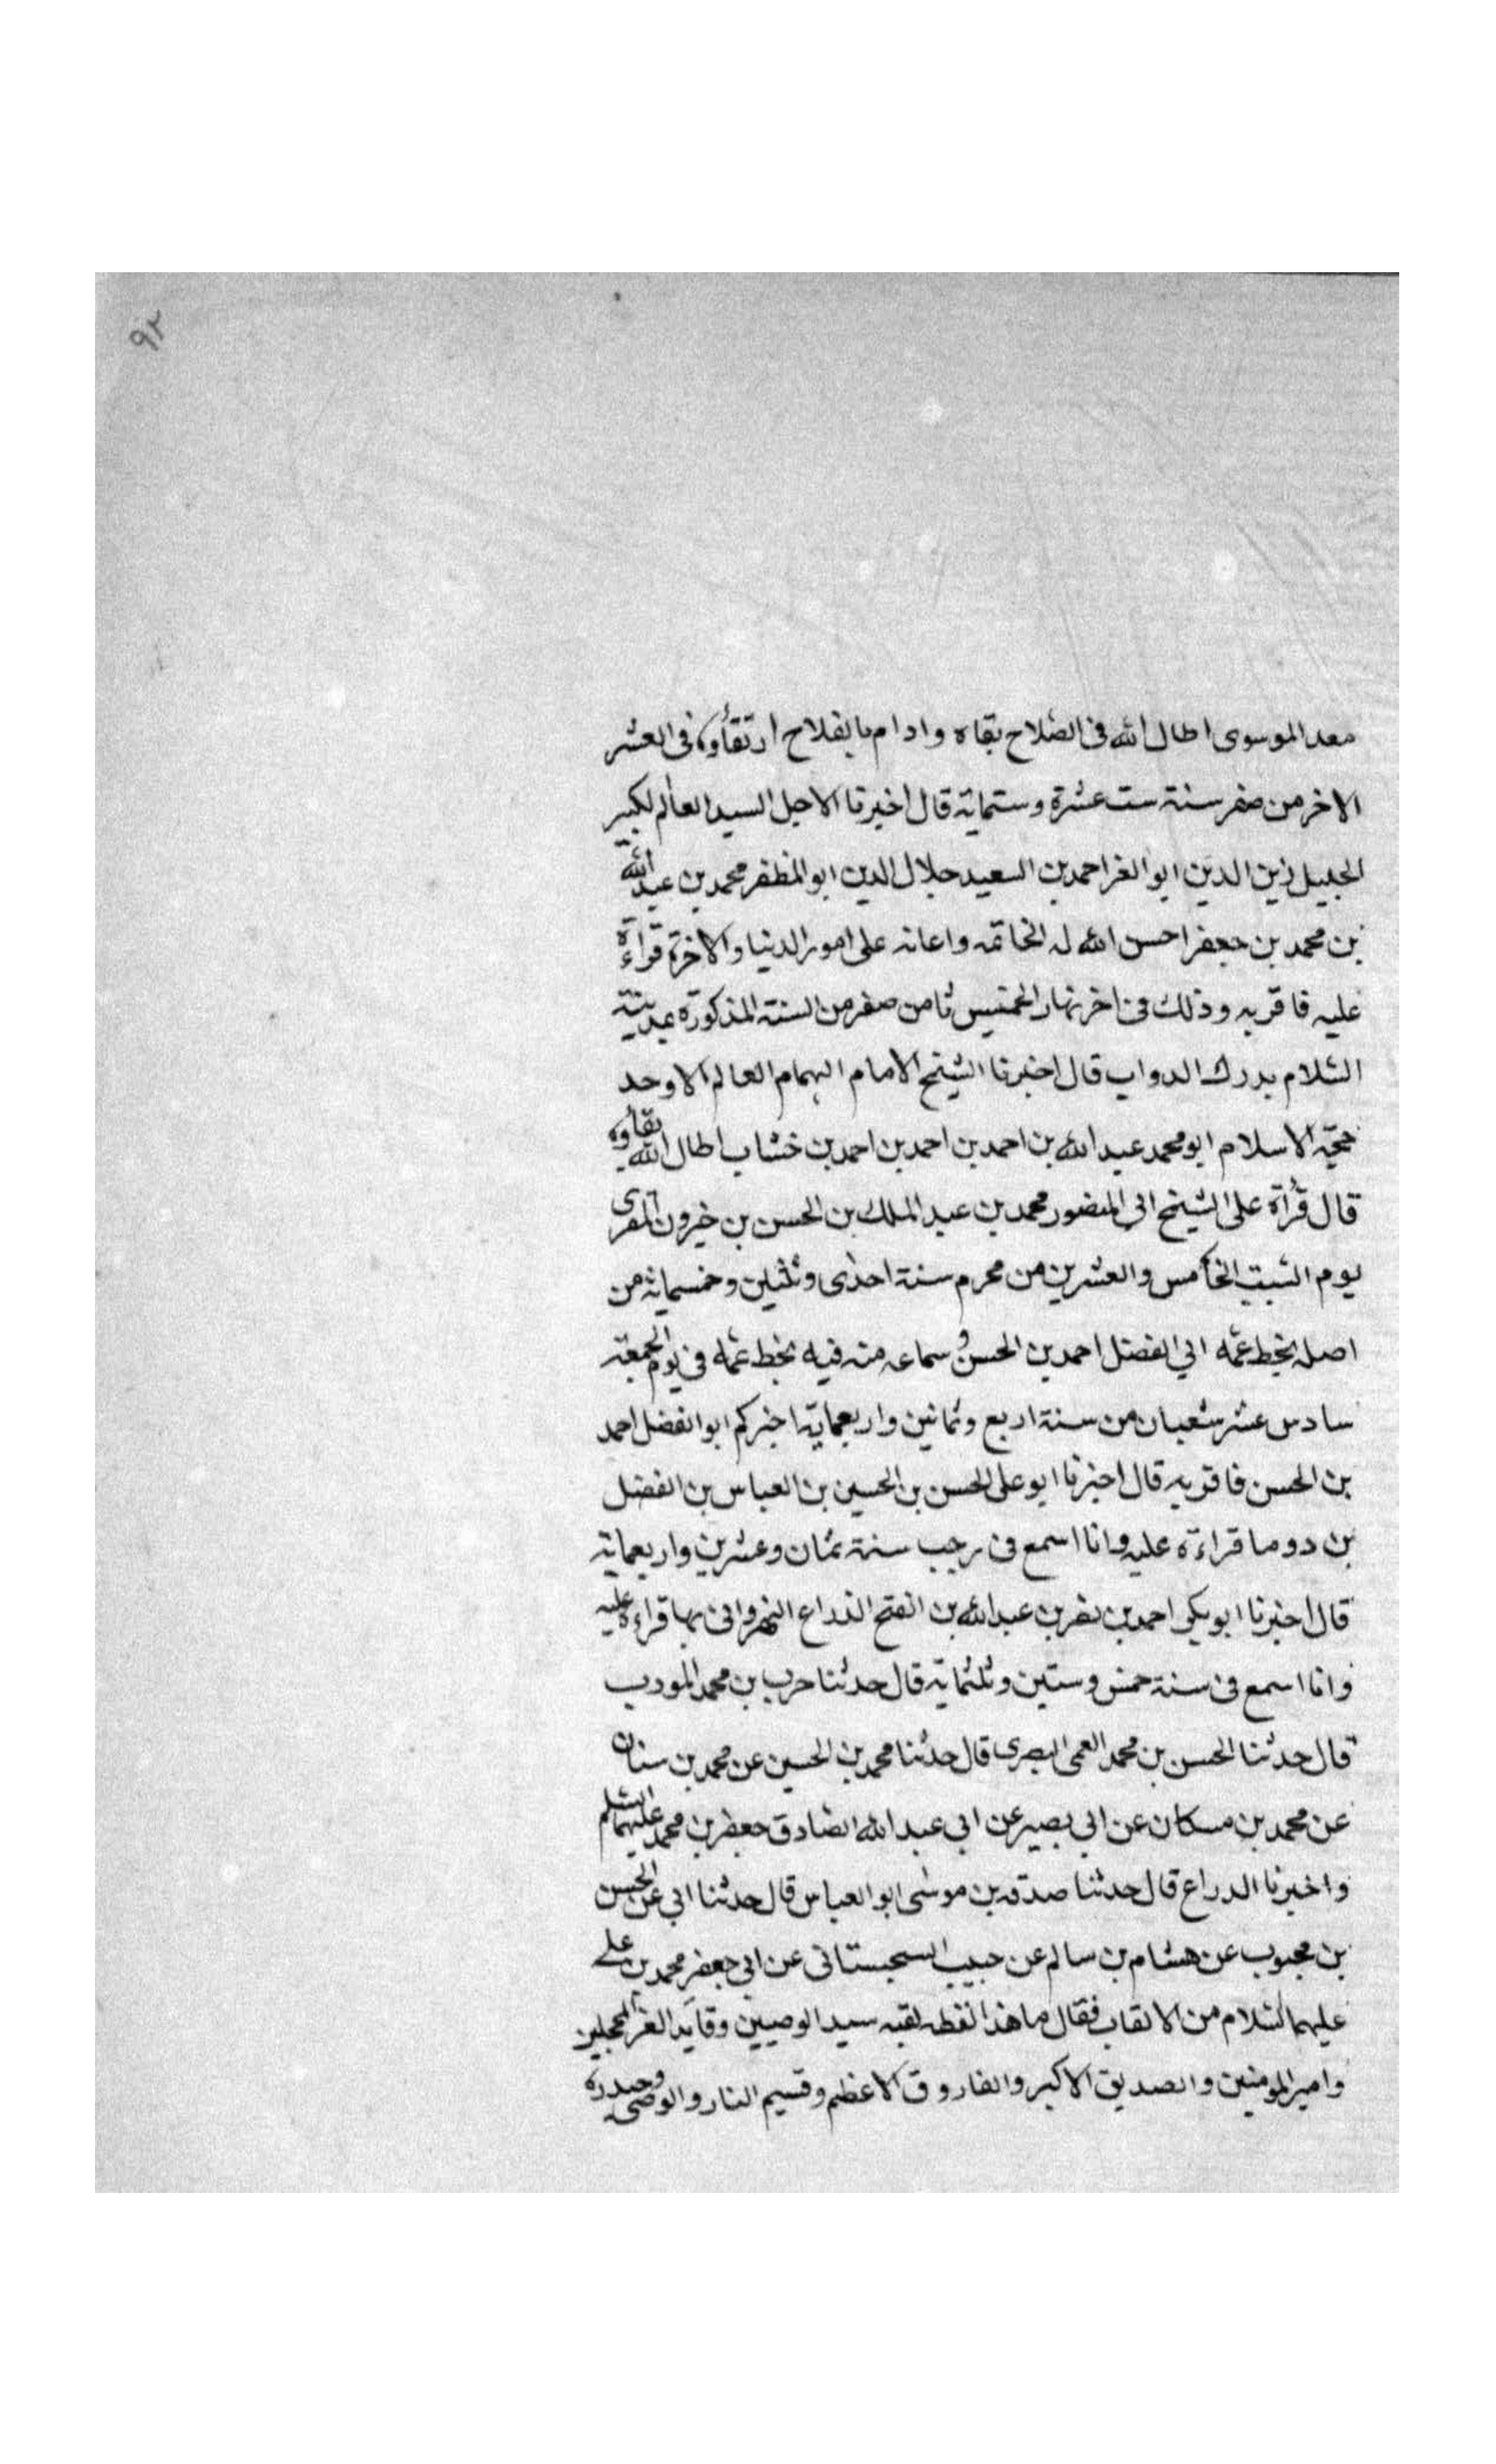 ٩٢
معد الموسوى اطال الله فى الصلاح بقاه وادام بالفلاح ارتقاؤه فى العشر
الاخر من صفر سنة ست عشرة وستمائة قال اخبرنا الاجل السيد العالم الكبير
الجليل زين الدين ابو العز احمد بن السعيد جلال الدين ابو المظفر محمد بن عبد الله
بن محمد بن جعفر احسن الله له الخاتمه واعانه على امور الدنيا والاخرة قراءة
عليه فاقر به وذلك فى اخر نهار الخميس ثامن صفر من السنة المذكورة بمدينة
السلام بدرك الدواب قال اخبرنا الشيخ الامام الهمام العالم الاوحد
حجة الاسلام ابو محمد عبد الله بن احمد بن احمد بن احمد بن خشاب اطال الله بقاؤه
قال قرأة على الشيخ ابى المنصور محمد بن عبد الملك بن الحسن بن خيرون المقرى
يوم السبت الخامس والعشرين من محرم سنة احدى وثلثين وخمسمائة من
اصله بخط عمه ابي الفضل احمد بن الحسن وسماعه منه فيه بخط عمه فى يوم الجمعة
سادس عشر شعبان من سنة اربع وثمانين واربعمائة اخبركم ابو الفضل احمد
بن الحسن فاقر به قال اخبرنا ابو على الحسن بن الحسين بن العباس بن الفضل
بن دوما قراءة عليه وانا اسمع فى رجب سنة ثمان وعشرين واربعمائة
قال اخبرنا ابو بكر احمد بن نصر بن عبد الله بن الفتح الذراع النهروانى بها قراءة عليه
وانا اسمع فى سنة خمس وستين وثلثمائة قال حدثنا حرب بن محمد المودب
قال حدثنا الحسن بن محمد العمى البصرى قال حدثنا محمد بن الحسين عن محمد بن سنان
عن محمد بن مسكان عن ابي بصير عن ابي عبد الله الصادق جعفر بن محمد عليهما السلم
واخبرنا الدراع قال حدثنا صدقه بن موسى ابو العباس قال حدثنا ابي عن الحسن
بن محبوب عن هشام بن سالم عن حبيب السجستانى عن ابي جعفر محمد بن على
عليهما السلام من الالقاب فقال ما هذا لفظه لقبه سيد الوصيين وقايد الغر المحجلين
وامير المومنين والصديق الاكبر والفاروق الاعظم وقسيم النار والوصى وحيدره